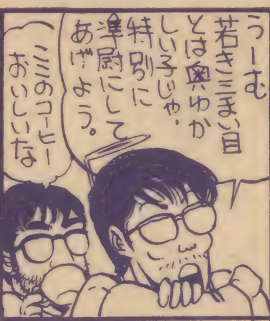 うーむ
若き三まい目
とは奥ゆか
しい子じゃ。
特別に
准尉にして
あげよう。
ここのコーヒー
おいしいな